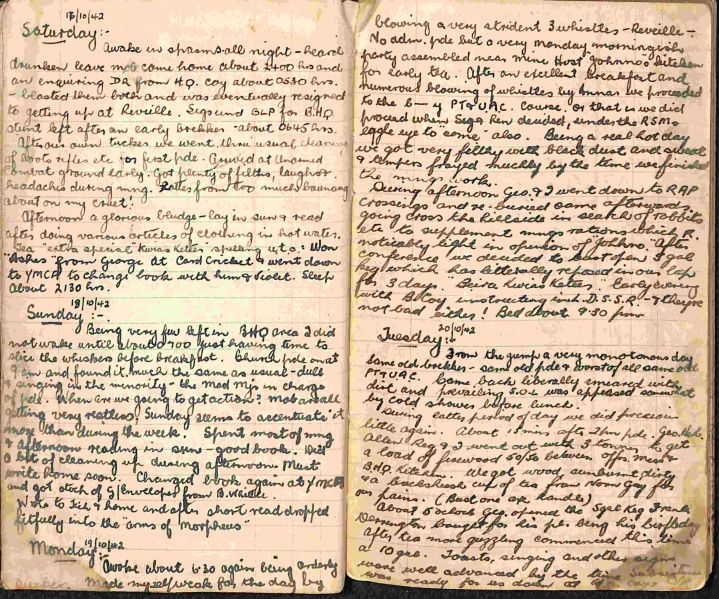 17/10/42
Saturday:-
Awake in spasms all night - heard
drunken leave mob come home about 2400 hrs and
an enquiring DR from HQ. Coy about 0530 hrs.
- blasted them both and was eventually resigned
to getting up at Reveille. Sigs and B&P for BHQ
stunt left after an early brekker about 0645 hrs.
After our own tucker we went thru usual cleaning
of boots rifles etc for first pde. at Unarmed
Combat ground early. Got plenty of filths, laughs &
headaches during mng. from too much bouncing
about on my cruet!
Afternoon a glorious bludge - lay in sun & read
after doing various articles of clothing in hot water.
Tea "extra special" spelling u.t.s.! Won
"Ashes" from George at Card Cricket & went down
to YMCA to change book with him & Violet. Sleep
about 2130 hrs.
18/10/42
Sunday:-
Being very few left in BHQ area I did
not wake until about 0700 just having time to
slice the whiskers before breakfast. Church pde on at
9 am and found it much the same as usual - dull
& singing in the minority - the Med Mjs in charge
of pde. When are we going to get action? Mob as all
getting very restless, Sunday seems to accentuate it
more than during the week. Spent most of mng
& afternoon reading in sun - good book. Did
a bit of cleaning up during afternoon. Must
write home soon. Changed book again at YMCA
and got stock of G/Envelopes from B.
Wrote to & home and after short read dropped
fitfully into the "arms of Morpheus"
19/10/42
Monday:-
Awoke about 6.30 again being orderly
Made myself weak for the day by
blowing a very strident 3 whistles - Reveille -
No adm. pde but a very Monday morningish
party assembled near mine Host Johnno's kitchen
for early tea. After an excellent breakfast and
numerous blowing of whistles by we proceeded
to the b—y PT & UAC. Course, or that is we did
proceed when Sigs decided, under the RSMs
eagle eye to "come" also. Being a real hot day
we got very filthy with black dust and sweat
& tempers frayed muchly by the time we finished
the mngs work.
During afternoon Geo. & I went down to RAP
crossings and re-buried same afterwards
going cross the hillside in search of rabbits
etc to supplement mngs rations which R.
noticably light in opinion of Johnno. After
conference we decided to bust open 5 gal
keg which has litterally reposed in our lap
for 3 days. Early evening
with B Coy instructing in D.S.S.R. - & they're
not bad either! Bed about 9.30 pm
20/10/42
Tuesday:-
From the jump a very monotonous day
Same old brekker - same old pde & worst of all same old
PT & UAC. Came back liberally smeared with
dirt and prevailing was appeased somewhat
by cold showers before lunch.
During latter period of day we did precious
little again. About 5 mins after 2 hrs pde. Geo.
Allan Reg & I went out with 3 tonner to get
a load of firewood 50/50 between Offs. mess
BHQ Kitchen. We got wood, sunburnt, dirty
& a bucksheesh cup of tea from Norm Gay for
our pains. (Bust one axe handle)
About 5 oclock Geo. opened the 5gal Keg Frank
bought for his pl. being his birthday
after tea more guzzling commenced this time
a 10 gal. Toasts, singing and other signs
were well advanced by the time
was ready for us down at